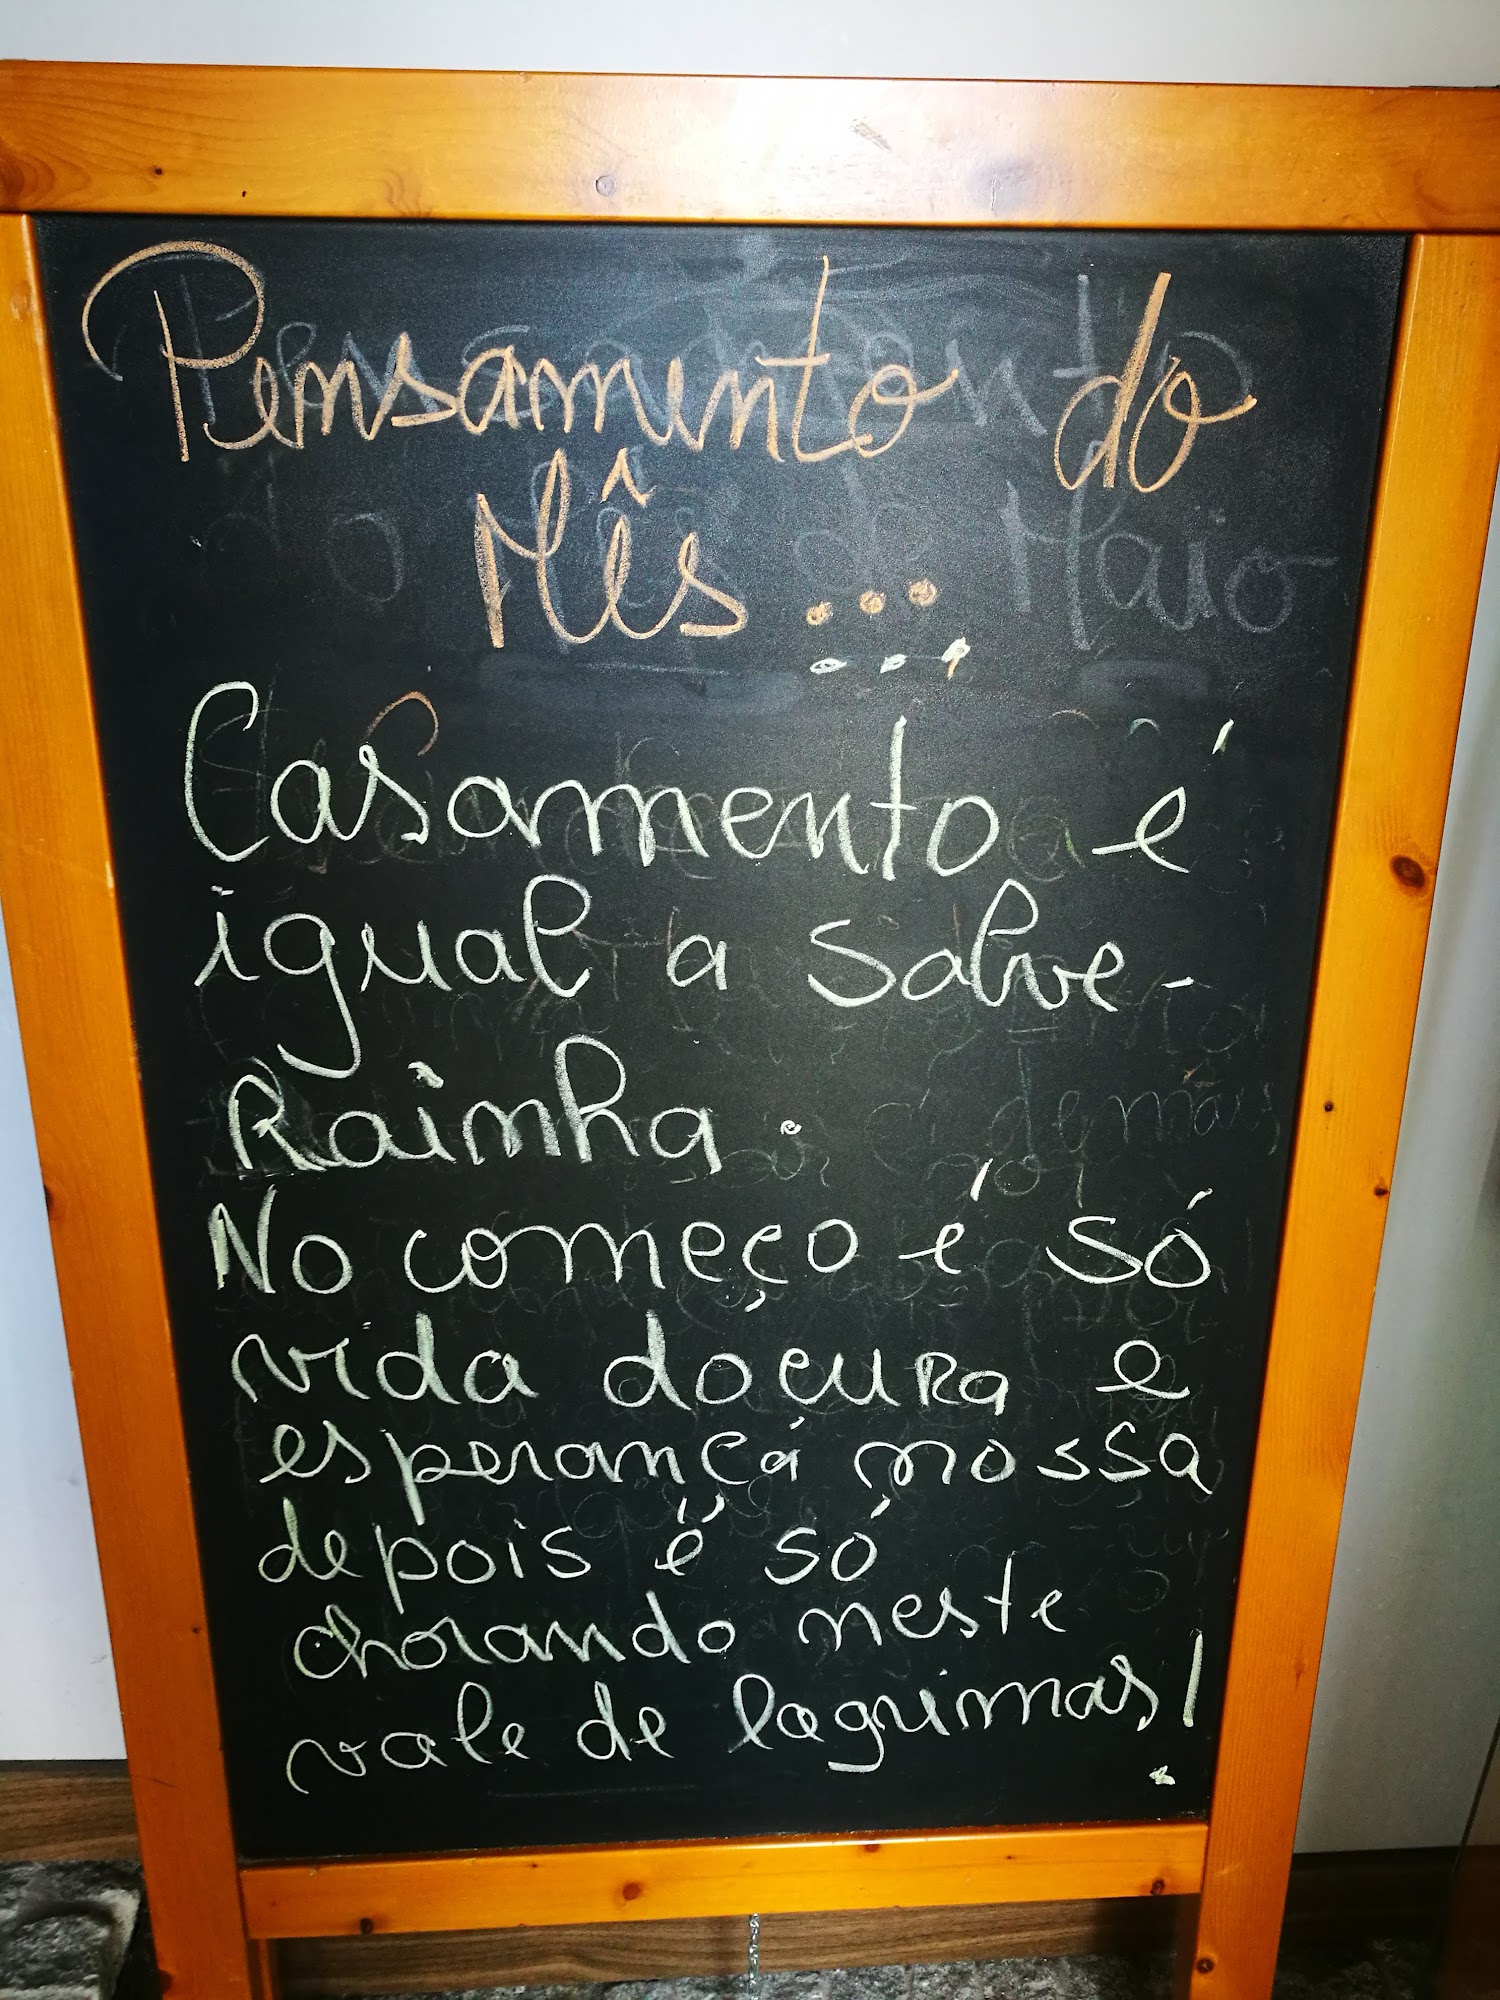 Pensamento do
Mês...
...
Casamento é
igual a Salve-
Rainha.
No começo é só
vida doçura e
esperança nossa
depois é só
chorando neste
vale de lagrimas!